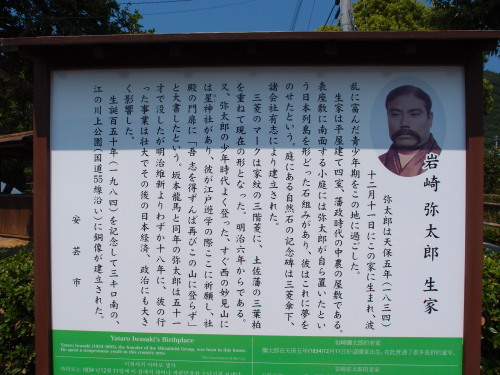 岩崎 弥太郎 生家
弥太郎は天保五年(一八三四)
十二月十一日にこの家に生まれ、波
乱に富んだ青少年期をこの地に過ごした。
生家は平屋建て四室、藩政時代の中農の屋敷である。
表座敷に南面する小庭には弥太郎が自ら置いたとい
う日本列島を形どった石組みがあり、彼はこれに夢を
のせたという。庭にある自然石の記念碑は三菱傘下、
諸会社有志により建立された。
三菱のマークは家紋の三階菱に、土佐藩の三葉柏
を重ねて現在の形となった。明治六年からである。
又、弥太郎の少年時代よく登った、すぐ西の妙見山に
は星神社があり、彼が江戸遊学の際ここに祈願し、社
殿の門扉に「吾、志を得ずんば再びこの山に登らず」
と大書したという。坂本龍馬と同年の弥太郎は五十一
才で没したが明治維新よりわずか十八年に、彼の行
った事業は壮大でその後の日本経済、政治にも大き
く影響した。
生誕百五十年(一九八四)を記念して三キロ南の、
江の川上公園(国道55線沿い)に銅像が建立された。
安芸市
Yataro Iwasaki's Birthplace
Yataro Iwasaki (1834-1885), the founder of the Mitsubishi Group, was born in this house.
He spent a tempestuous youth in this country area.
岩崎彌太郎的老家